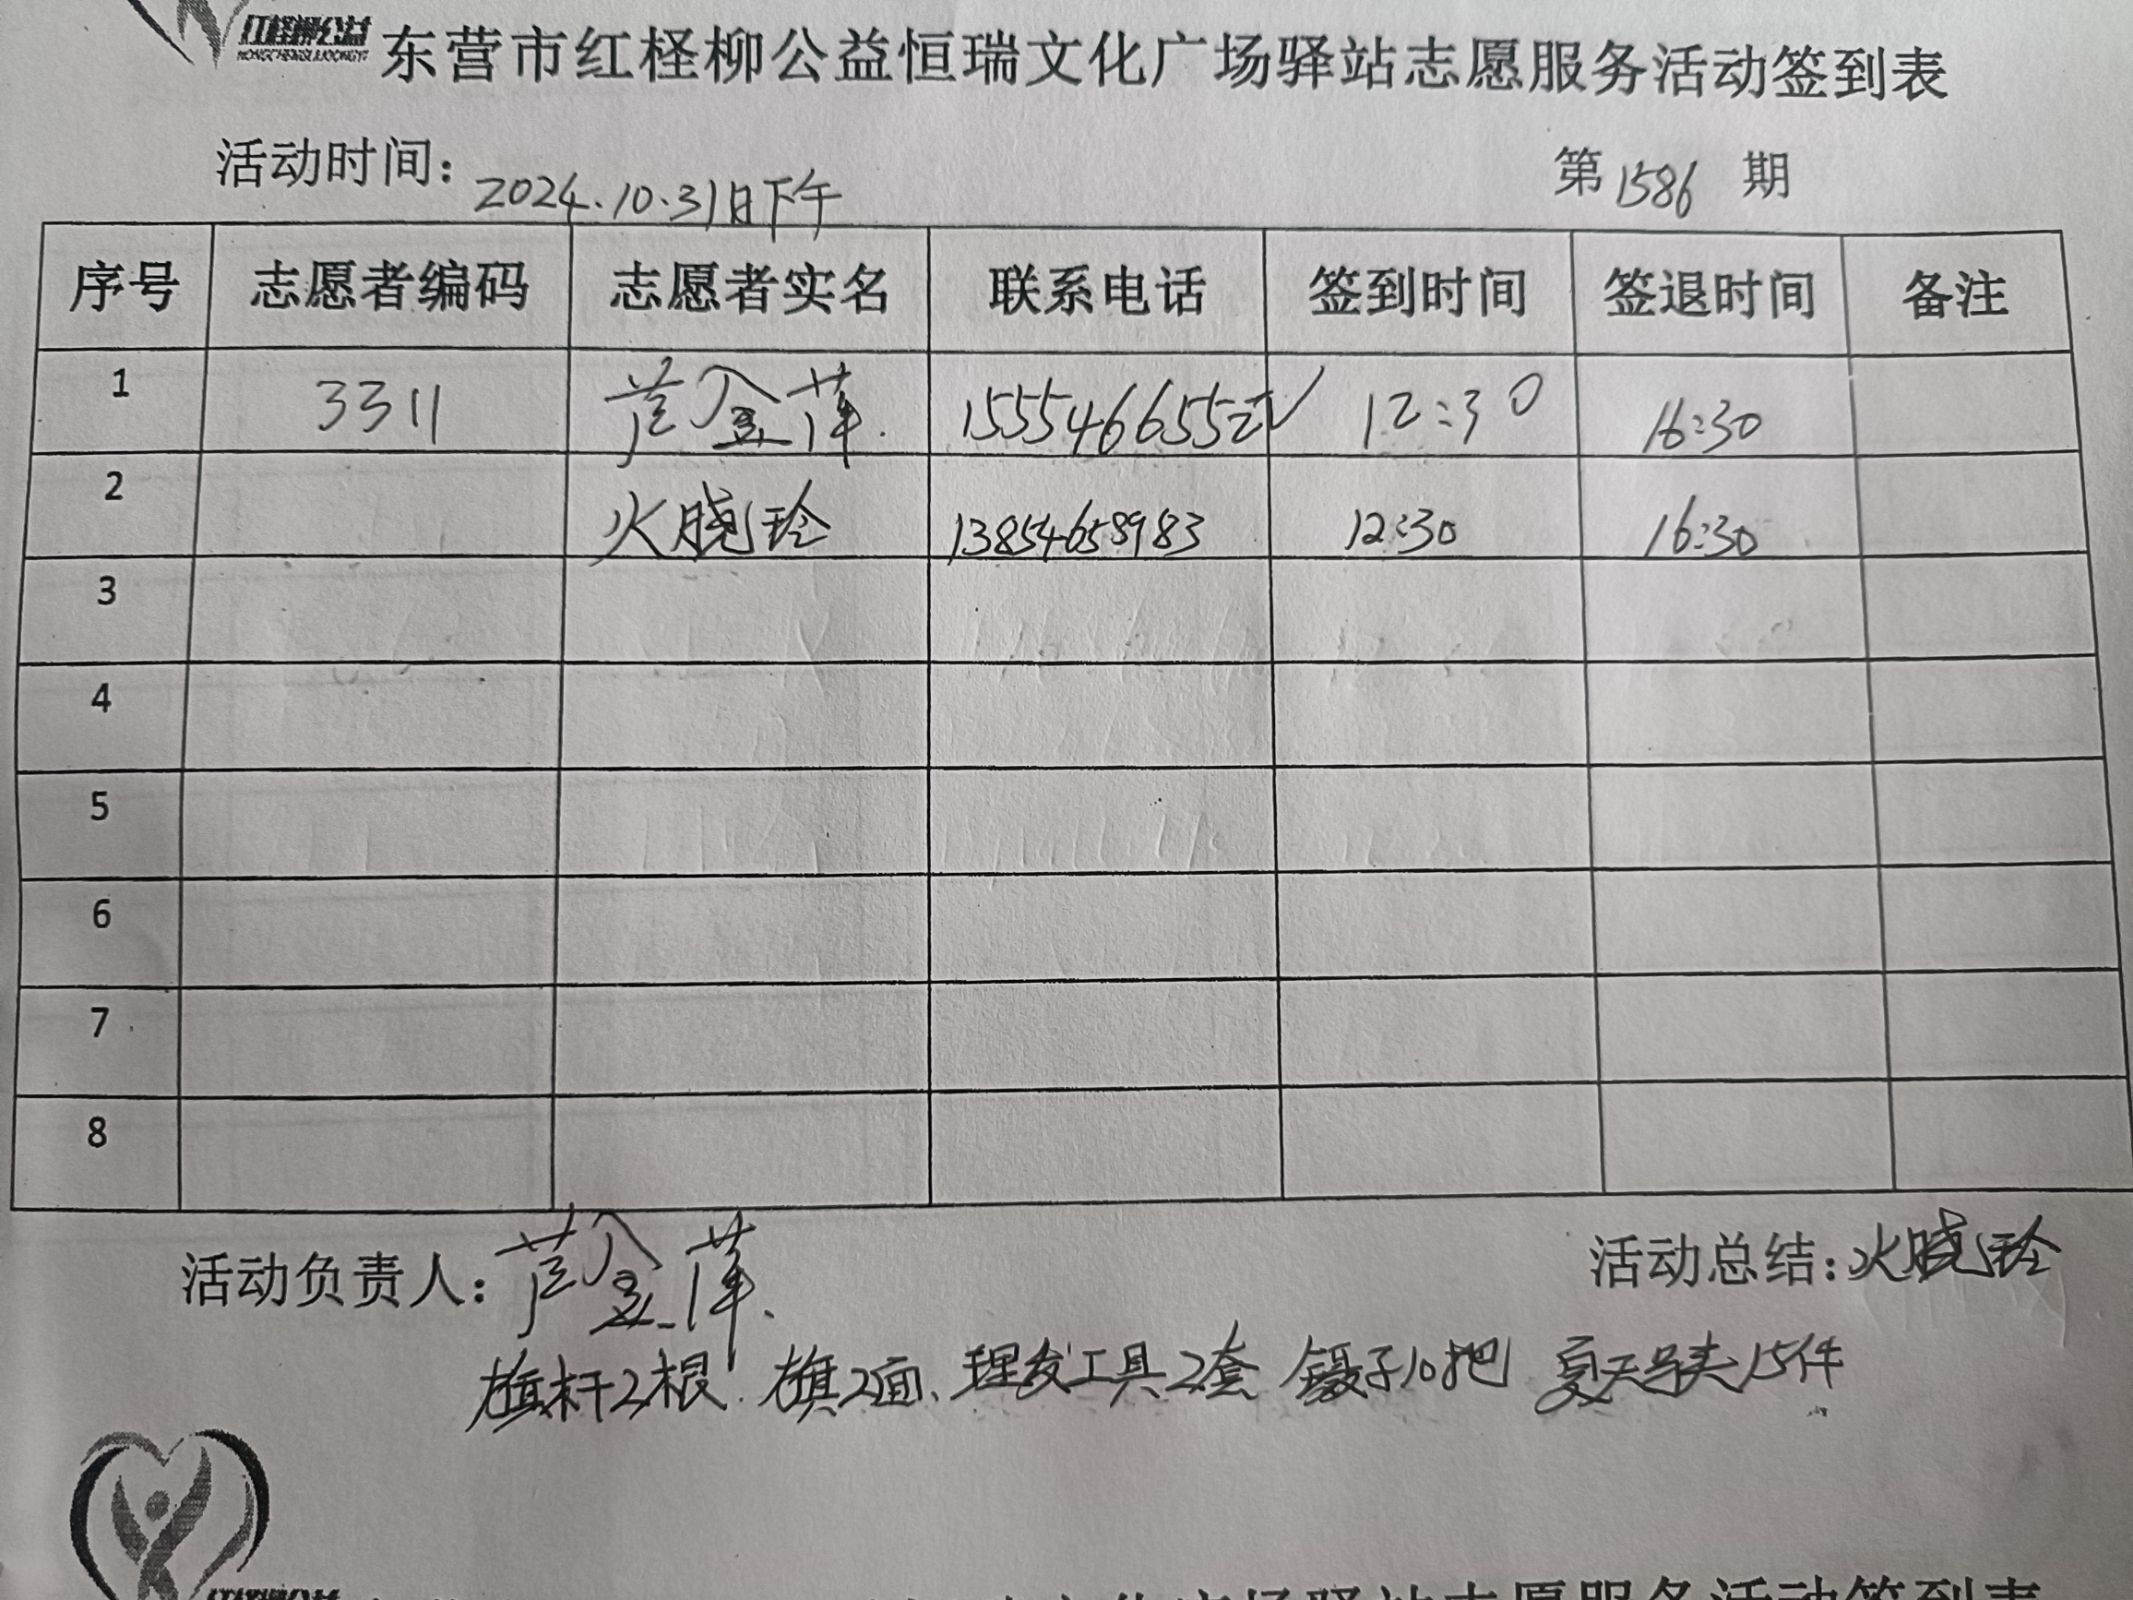 红柽柳公益 东营市红柽柳公益恒瑞文化广场驿站志愿服务活动签到表
HONGCHENGLIUGONGYI
活动时间: 2024.10.31日下午 第1586期
序号 志愿者编码 志愿者实名 联系电话 签到时间 签退时间 备注
1 3311 12:30 16:30
2 火晓玲 13854658983 12:30 16:30
3
4
5
6
7
8
活动负责人: 活动总结:火晓玲
旗杆2根. 旗2面、理发工具2套 镊子10把 夏天号夹15件
文化广场驿站志愿服务活动签到表